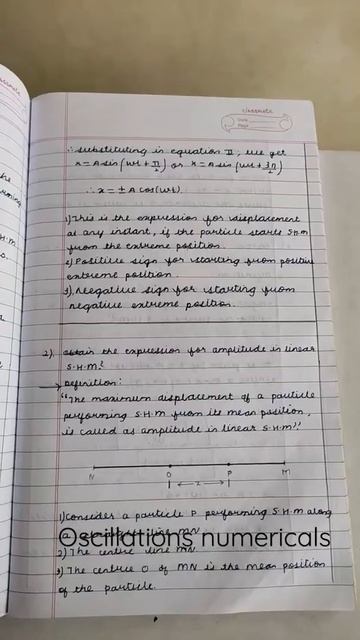 classmate
Date
Page
∴ substituting in equation II, we get
x = A sin (ωt + π/2) or x = A sin (ωt + 3π/2)
∴ x = ± A cos(ωt).
1) This is the expression for displacement
at any instant, if the particle starts S.H.M
from the extreme position.
2) Positive sign for starting from positive
extreme position.
3) Negative sign for starting from
negative extreme position.
2) obtain the expression for amplitude in linear
S.H.M?
→ Definition:
"The maximum displacement of a particle
performing S.H.M from its mean position,
is called as amplitude in linear S.H.M".
N O P M
x
1) Consider a particle P performing S.H.M along
Oscillations numericals
line MN.
2) The centre line MN.
3) The centre O of MN is the mean position
of the particle.